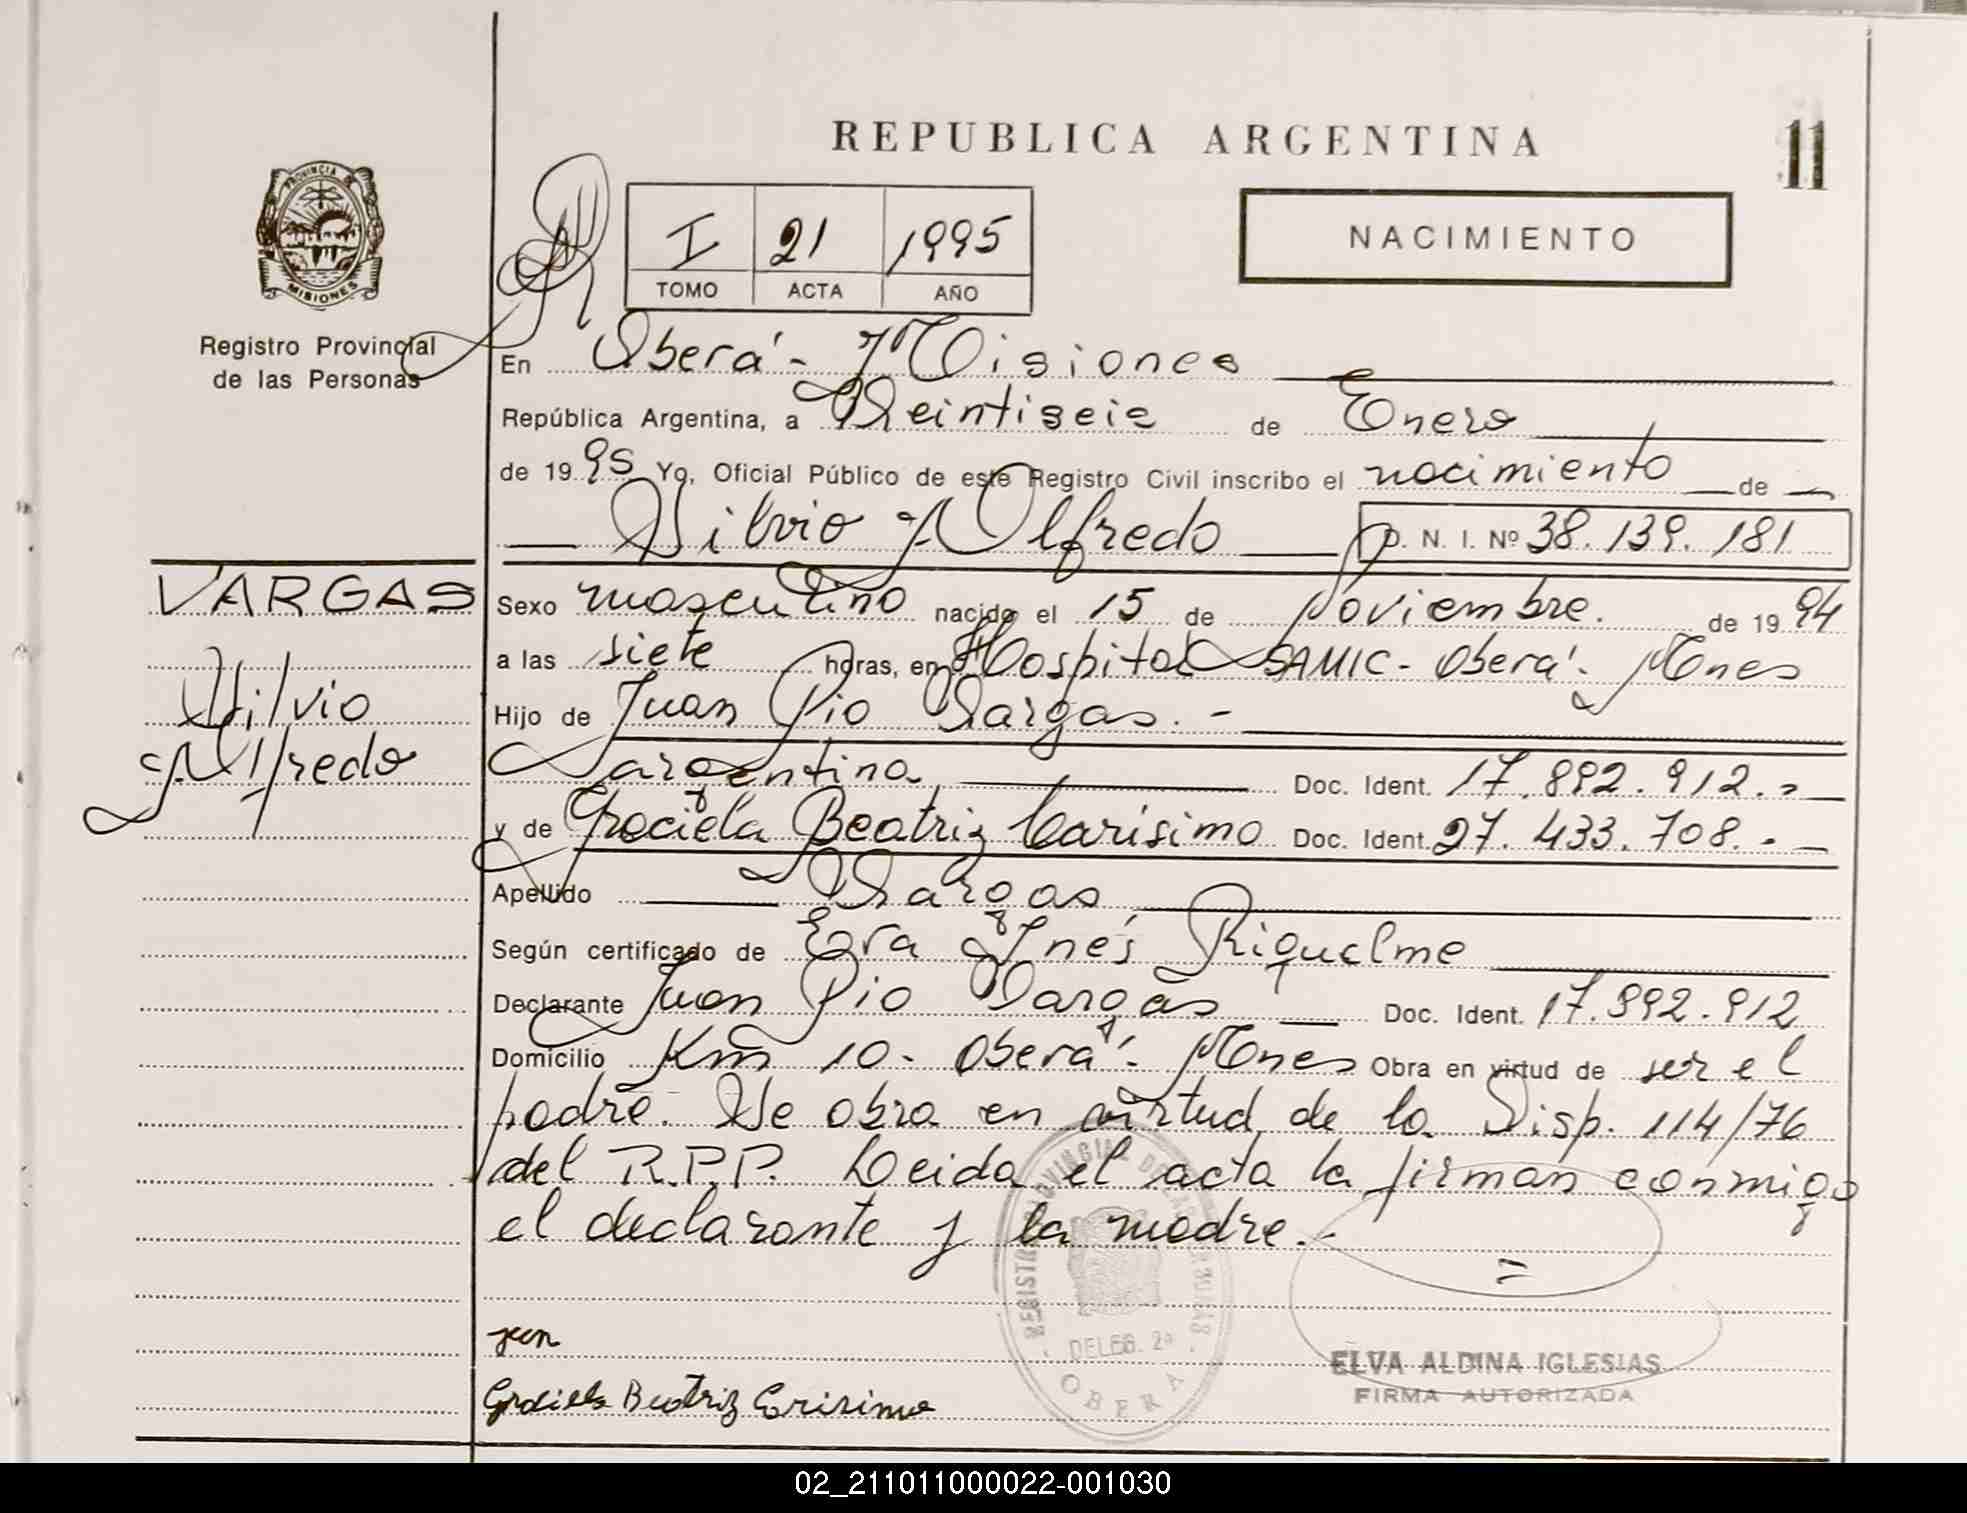 REPUBLICA ARGENTINA
11
PROVINCIA DE
MISIONES
Registro Provincial
de las Personas
I 21 1995
TOMO ACTA AÑO
NACIMIENTO
En Oberá - Misiones
República Argentina, a Veintiseis de Enero
de 19 95 Yo, Oficial Público de este Registro Civil inscribo el nacimiento de
Silvio Alfredo D. N. I. Nº 38.139.181
VARGAS
Silvio
Alfredo
Sexo masculino nacido el 15 de Noviembre. de 19 94
a las siete horas, en Hospital SAMIC - Oberá - Mnes
Hijo de Juan Pio Vargas. -
argentina Doc. Ident. 17.892.912.-
y de Graciela Beatriz Carísimo Doc. Ident. 27.433.708.-
Apellido Vargas
Según certificado de Eva Inés Riquelme
Declarante Juan Pio Vargas Doc. Ident. 17.892.912
Domicilio Km 10 - Oberá - Mnes Obra en virtud de ser el
padre. Se obra en virtud de la Disp. 114/76
del R.P.P. Leida el acta la firman conmigo
el declarante y la madre.-
REGISTRO PROVINCIAL DE LAS PERSONAS
DELEG. 2ª
OBERA
Graciela Beatriz Carisimo
ELVA ALDINA IGLESIAS
FIRMA AUTORIZADA
02_211011000022-001030